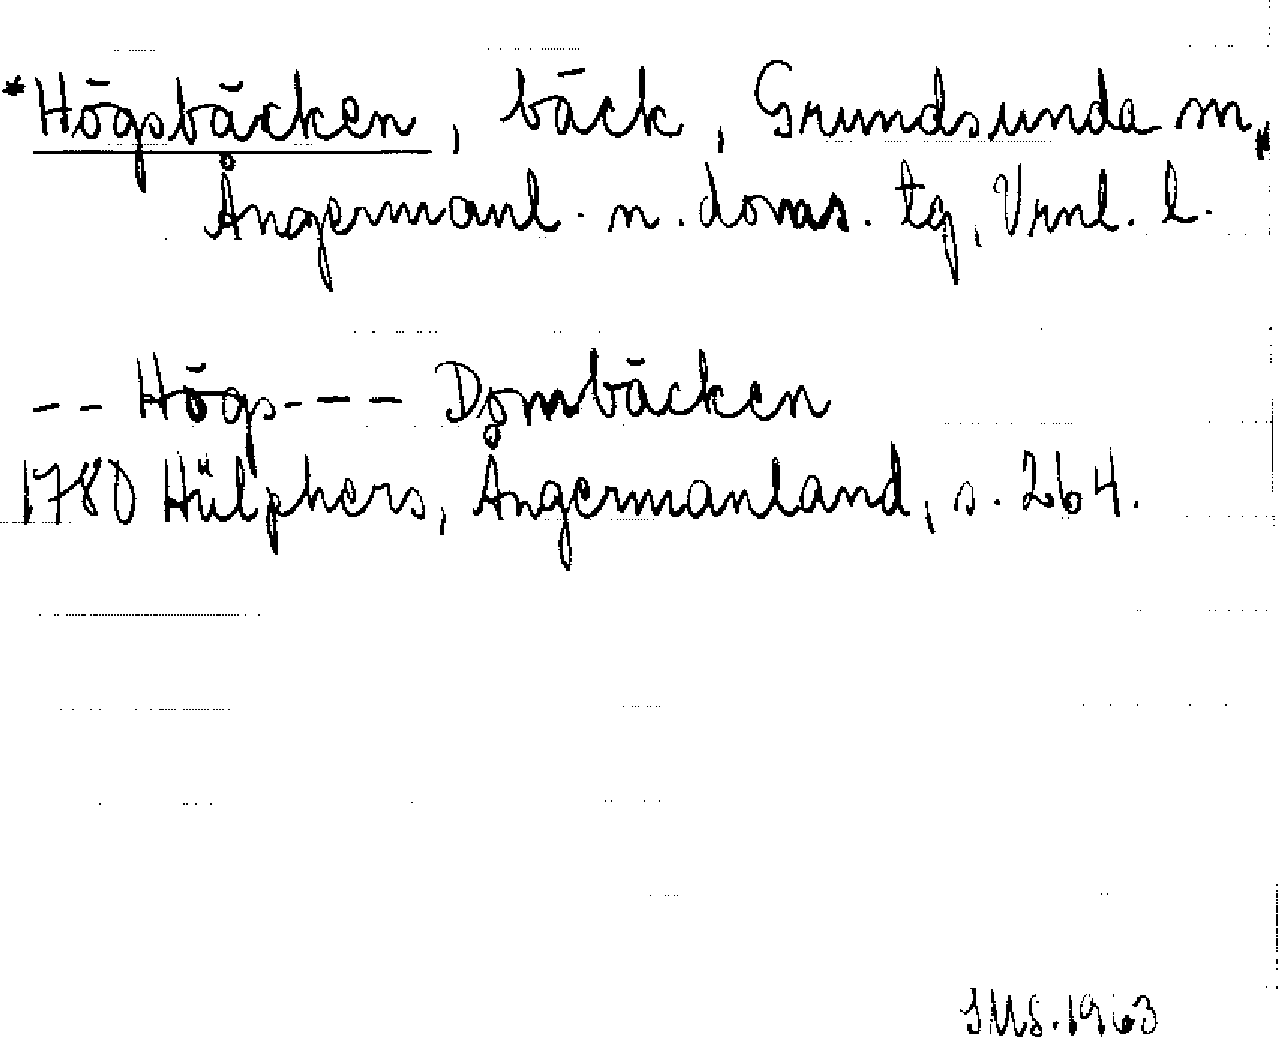 *Högsbäcken, bäck, Grundsunda sn,
Ångermanl. n. domas. tg, Vrnl. l.
-- Högs--- Dombäcken
1780 Hülphers, Ångermanland, s. 264.
SMS. 1963